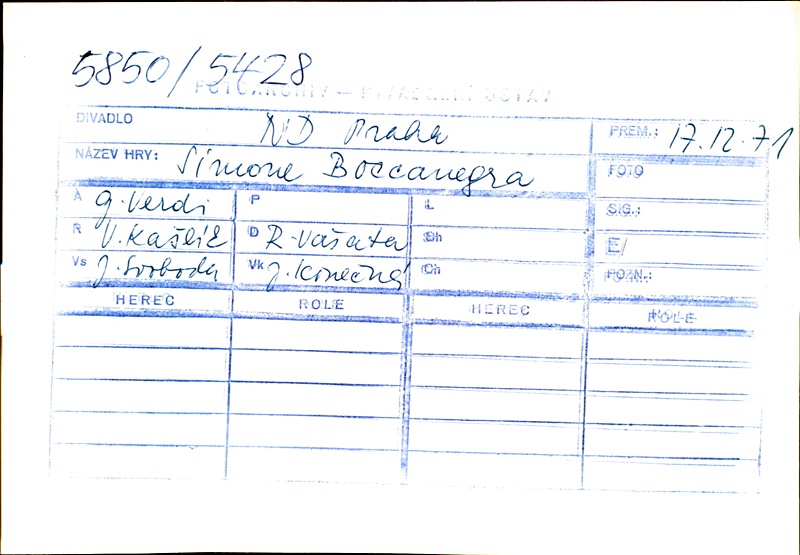 5850/5428
FOTOARCHIV — DIVADELNÍ ÚSTAV
DIVADLO ND Praha PREM.: 17.12.71
NÁZEV HRY: Simone Boccanegra FOTO
A G. Verdi P L SIG.:
R V. Kašlík D R. Vašata Sh E/
Vs J. Svoboda Vk J. Konečná Ch POZN.:
HEREC ROLE HEREC ROLE